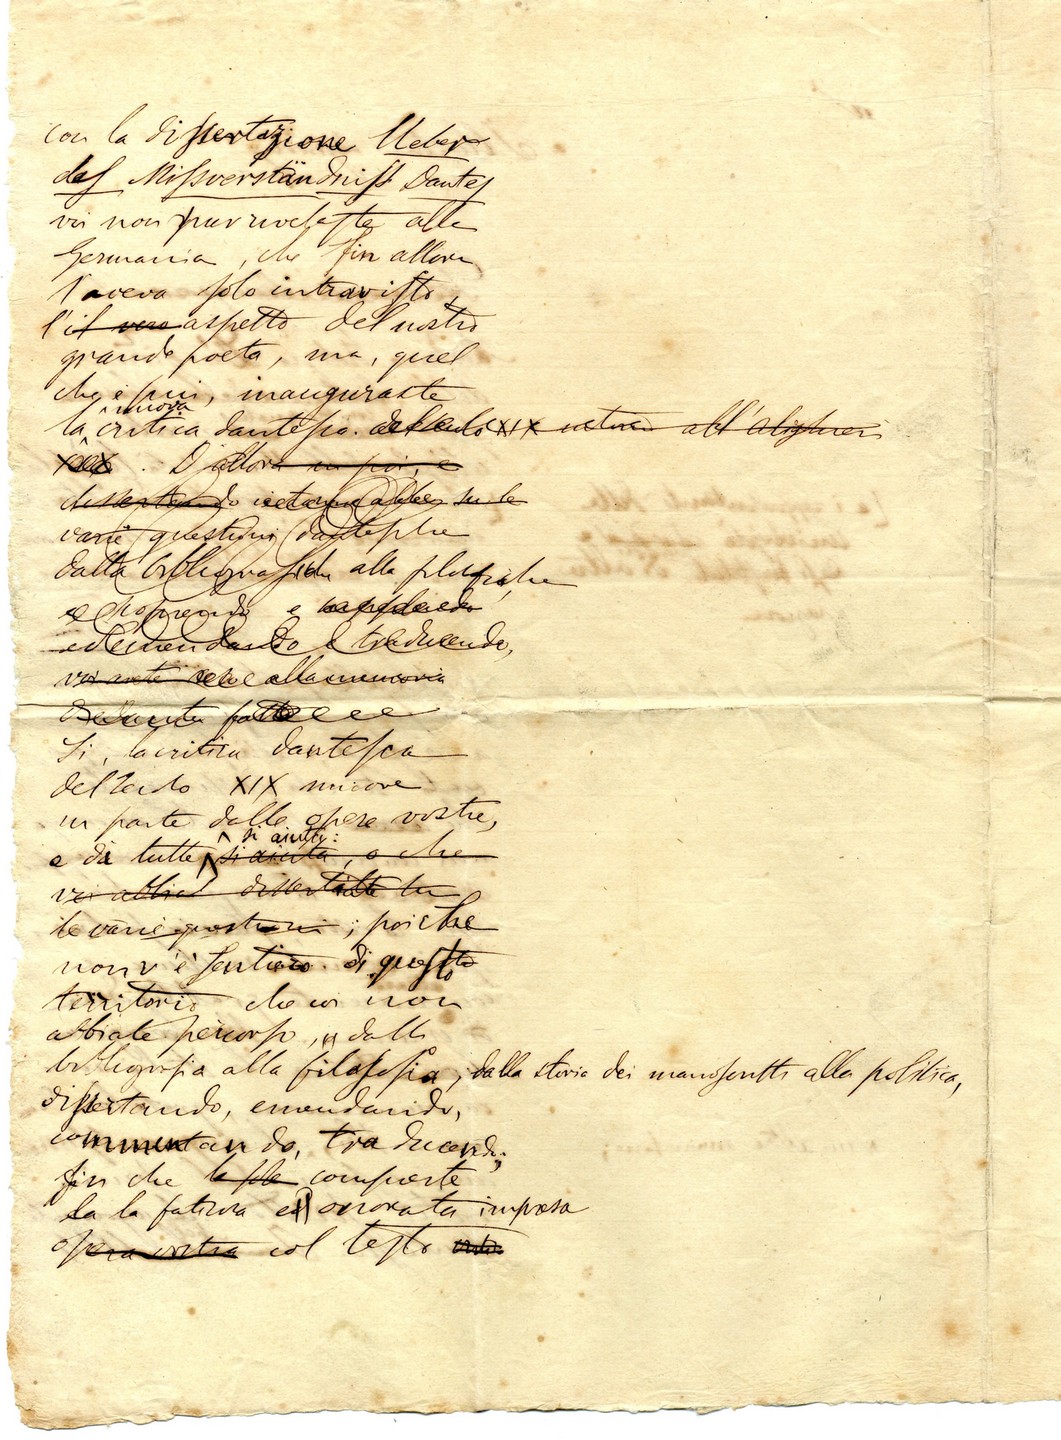 con la dissertazione Ueber
das Missverständniss Dantes
voi non pur rivelaste alla
Germania, che fin allora
l'aveva solo intravisto,
l'il vero aspetto del nostro
grande poeta, ma, quel
che è più, inauguraste
nuova
la critica dantesca. del secolo XIX intorno all'Alighieri
XIX. D'allora in poi, e
dissertando su le
varie questioni dantesche
dalla bibliografia alla filosofia, che
e scoprendo e
ed emendando e traducendo,
voi avete alla memoria
di Dante fatto
Sì, la critica dantesca
del secolo XIX muove
in parte dalle opere vostre,
si aiuti:
e di tutte si aiuta, o che
voi abbiate dissertato su
le varie questioni; poichè
non v'è sentiero di questo
territorio che voi non
abbiate percorso, dalla
bibliografia alla filosofia, dalla storia dei manoscritti alla politica,
dissertando, emendando,
commentando, traducendo;
fin che compieste
la faticosa ed onorata impresa
opera vostra col testo